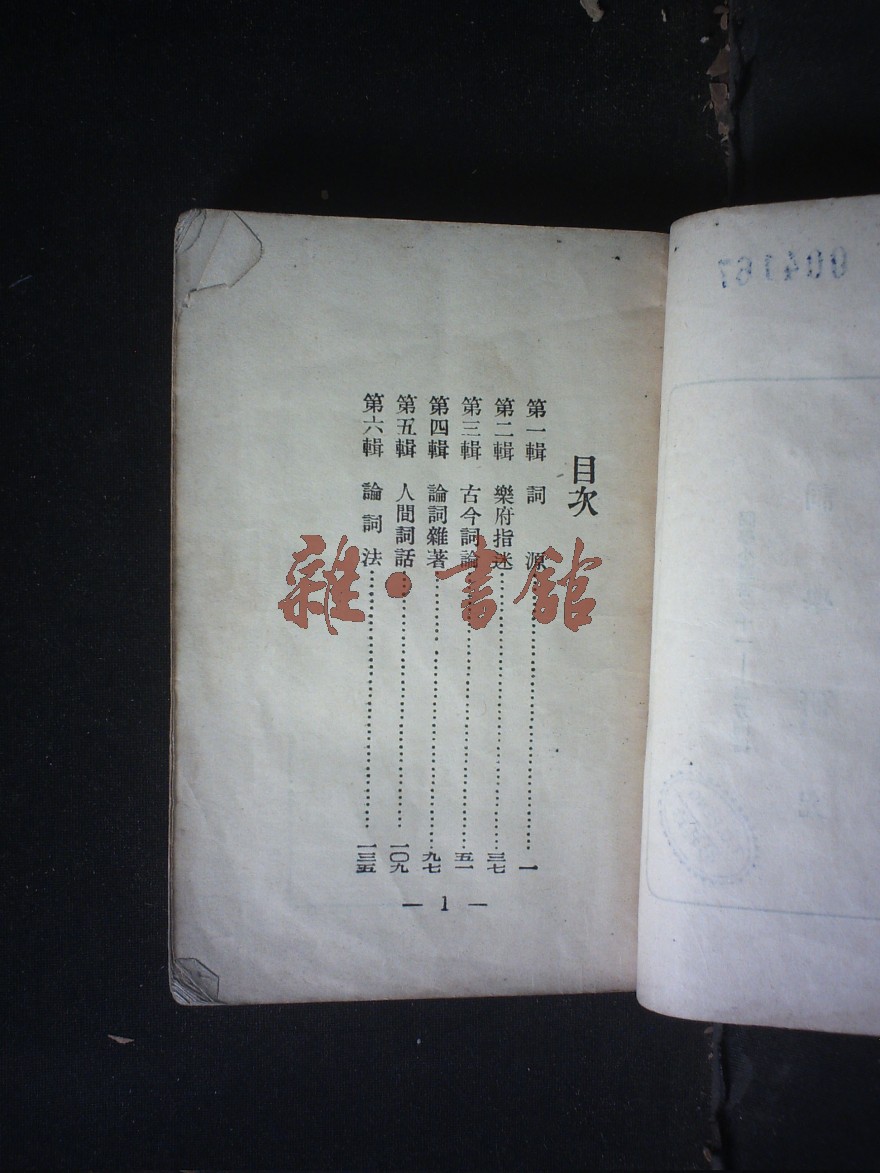 目次
第一輯 詞源…………一
第二輯 樂府指迷…………三七
第三輯 古今詞論…………五一
第四輯 論詞雜著…………九七
第五輯 人間詞話…………一〇九
第六輯 論詞法…………一三五
— 1 —
雜·書館
004167